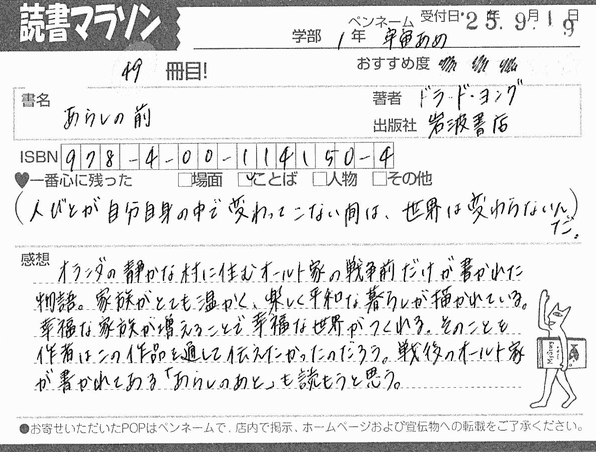 読書マラソン
学部 1年 ペンネーム 宇宙あめ 受付日・25.年9.月19日
49 冊目!
おすすめ度
書名 あらしの前
著者 ドラ・ド・ヨング
出版社 岩波書店
ISBN 978-4-00-114150-4
♥一番心に残った □場面 ☑ことば □人物 □その他
(人びとが自分自身の中で変わってこない間は、世界は変わらないんだ。)
感想 オランダの静かな村に住むオールト家の戦争前だけが書かれた
物語。家族がとても温かく、楽しく平和な暮らしが描かれている。
幸福な家族が増えることで幸福な世界がつくれる。そのことを
作者はこの作品を通して伝えたかったのだろう。戦後のオールト家
が書かれてある「あらしのあと」も読もうと思う。
●お寄せいただいたPOPはペンネームで、店内で掲示、ホームページおよび宣伝物への転載をご了承ください。